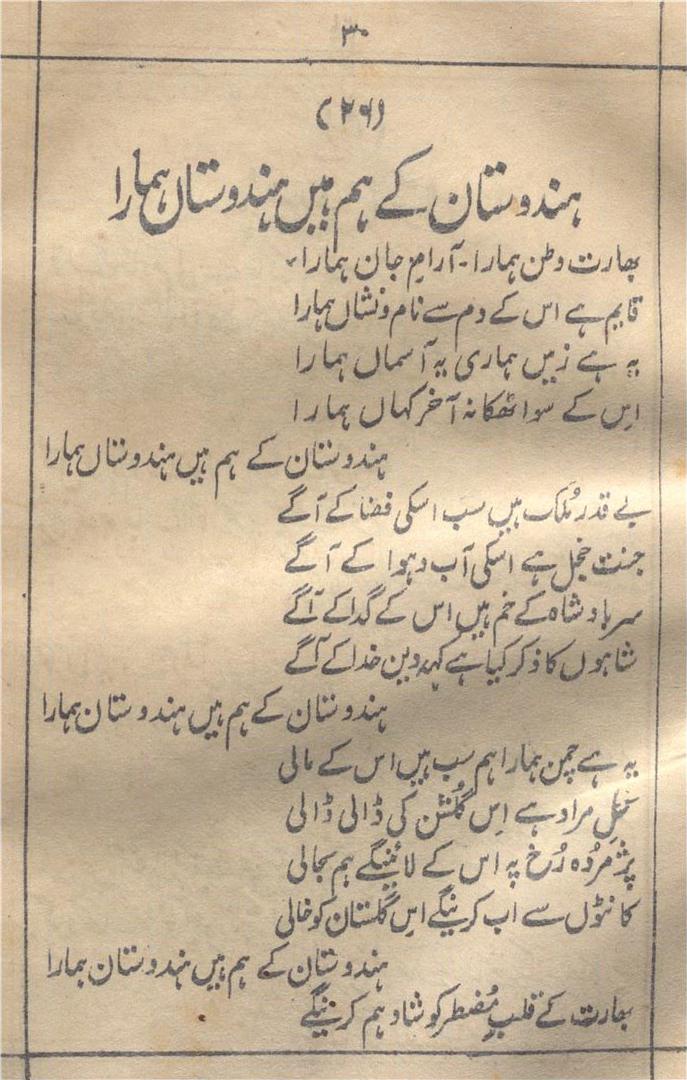 ۳۰
(۲۶)
ہندوستان کے ہم ہیں ہندوستاں ہمارا
بھارت وطن ہمارا۔ آرامِ جان ہمارا۔
قایم ہے اس کے دم سے نام و نشاں ہمارا
یہ ہے زمیں ہماری یہ آسماں ہمارا
اِس کے سوا ٹھکانہ آخر کہاں ہمارا
ہندوستان کے ہم ہیں ہندوستاں ہمارا
بے قدر مُلک ہیں سب اسکی فضا کے آگے
جنت خجل ہے اسکی آب و ہوا کے آگے
سر بادشاہ کے خم ہیں اس کے گدا کے آگے
شاہوں کا ذکر کیا ہے کہہ دیں خدا کے آگے
ہندوستان کے ہم ہیں ہندوستان ہمارا
یہ ہے چمن ہمارا ہم سب ہیں اس کے مالی
نخلِ مراد ہے اِس گلشن کی ڈالی ڈالی
پژمُردہ رُخ پہ اس کے لائینگے ہم بحالی
کانٹوں سے اب کرینگے اِس گلستان کو خالی
ہندوستان کے ہم ہیں ہندوستان ہمارا
بھارت کے قلبِ مُضطر کو شاد ہم کرینگے